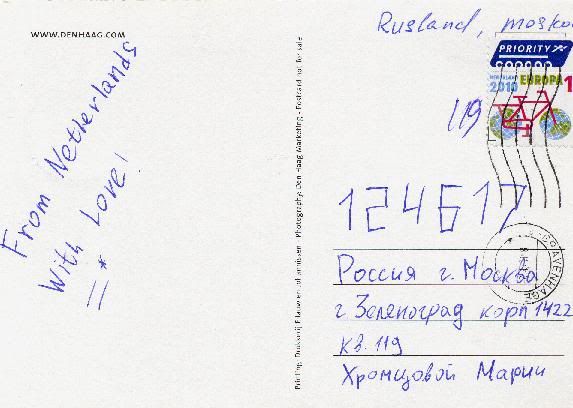 WWW.DENHAAG.COM
From Netherlands
With Love!
Printing: Drukkerij Elauwersloot
Photography: Den Haag Marketing - Postcard not for sale
Rusland, mosko
PRIORITY
NEDERLAND
2010 EUROPA 1
119
124617
'S-GRAVENHAGE
Россия г. Москва
г Зеленоград корп 1422
кв. 119
Хромцовой Марии